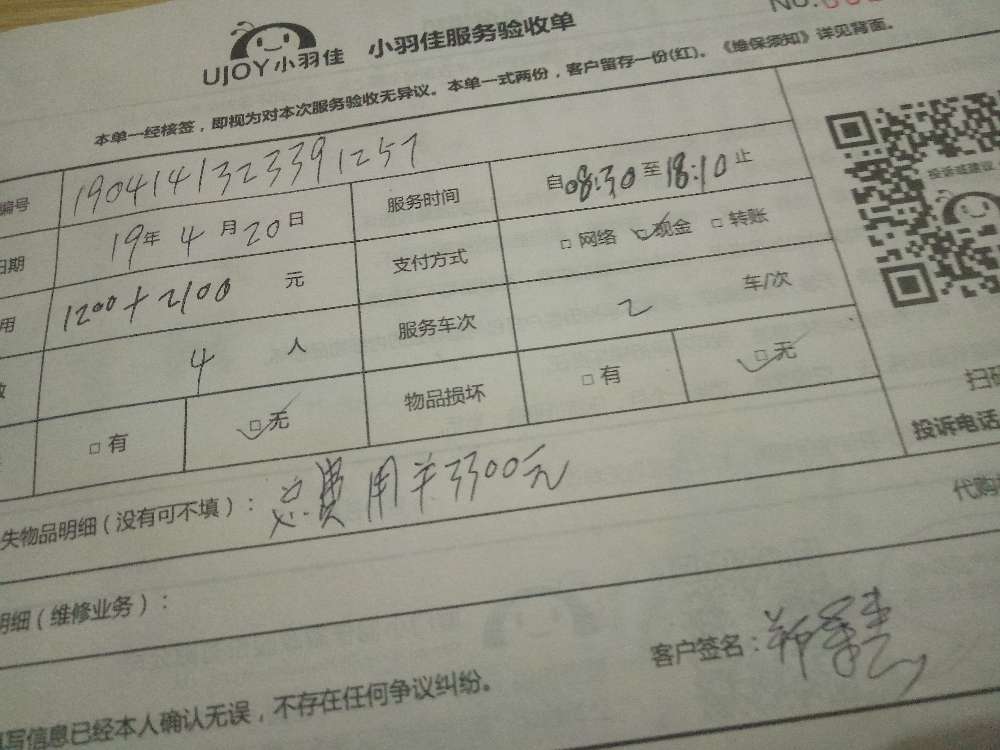 No.
UJOY小羽佳 小羽佳服务验收单
本单一经核签，即视为对本次服务验收无异议。本单一式两份，客户留存一份(红)。《维保须知》详见背面。
编号 1904141323391257
日期 19年4月20日 服务时间 自08:30至18:10止
用 1200+2100 元 支付方式 □网络 □现金 □转账
4 人 服务车次 2 车/次
□有 □无 物品损坏 □有 □无
投诉或建议
扫码
投诉电话
失物品明细（没有可不填）： 总费用¥3300元
代购
明细（维修业务）：
客户签名：
填写信息已经本人确认无误，不存在任何争议纠纷。